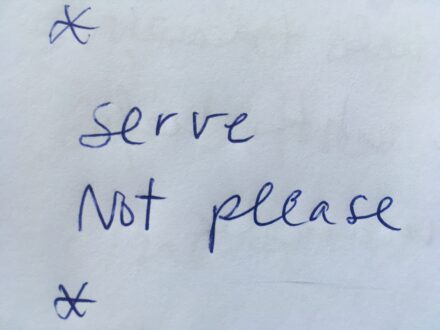 *
serve
Not please
*